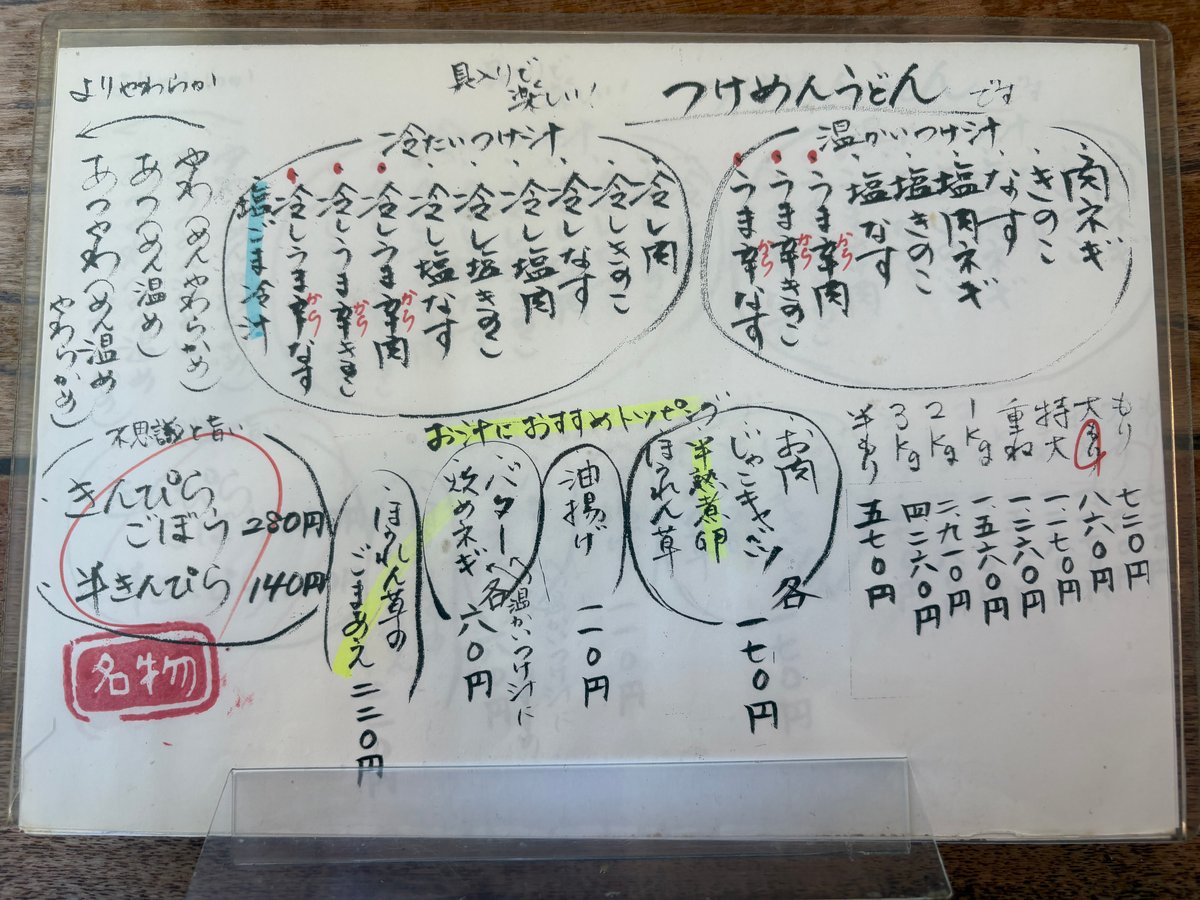 つけめんうどんです
具入りで
楽しい！
温かいつけ汁
・肉ネギ
・きのこ
・なす
・塩肉ネギ
・塩きのこ
・塩なす
・うま辛肉
から
・うま辛きのこ
から
・うま辛なす
から
冷たいつけ汁
・冷し肉
・冷しきのこ
・冷しなす
・冷し塩肉
・冷し塩きのこ
・冷し塩なす
・冷しうま辛肉
から
・冷しうま辛きのこ
から
・冷しうま辛なす
から
・塩ごま冷汁
よりやわらか
やわ(めんやわらかめ)
あつ(めん温め)
あつやわ(めん温め
やわらかめ)
もり 七二〇円
大もり 八六〇円
特大 一、一七〇円
重ね 一、二六〇円
1kg 一、五六〇円
2kg 二、九一〇円
3kg 四、二六〇円
半もり 五七〇円
お汁におすすめトッピング
お肉
じゃこキャベツ
半熟煮卵
ほうれん草
各一七〇円
油揚げ 一一〇円
バター
へ温かいつけ汁に
炒めネギ
各六〇円
・ほうれん草の
ごまあえ 二二〇円
不思議と旨い
・きんぴら
ごぼう 280円
・半きんぴら 140円
名物